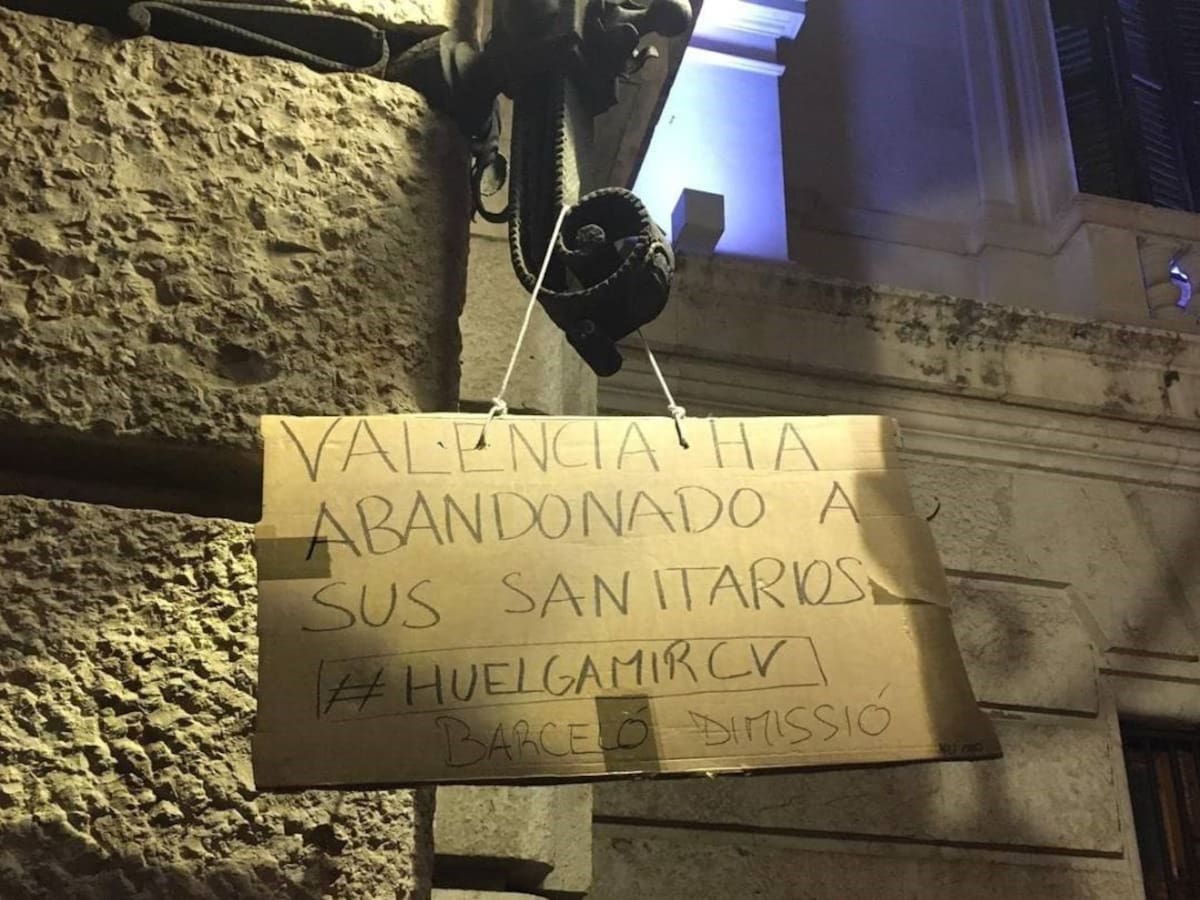 VALENCIA HA
ABANDONADO A
SUS SANITARIOS
#HUELGAMIRCV
BARCELÓ DIMISSIÓ